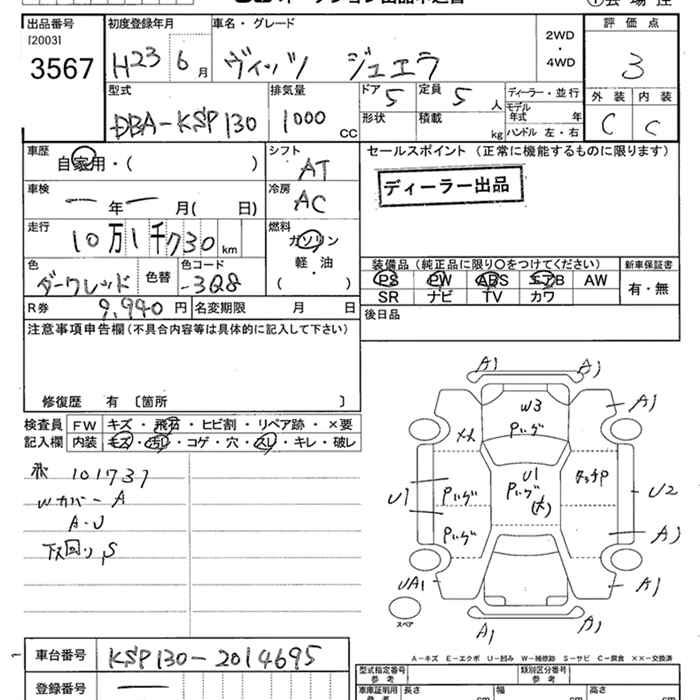 出品番号 初度登録年月 車名・グレード 評価点
[2003]
3567 H23 6月 ヴィッツ ジュエラ 2WD・4WD 3
型式 排気量 ドア 5 定員 5人 ディーラー・並行 外装 内装
DBA-KSP130 1000CC 形状 積載 kg モデル年式 年 C C
ハンドル 左・右
車歴 シフト セールスポイント (正常に機能するものに限ります)
自家用・( ) AT
ディーラー出品
車検 冷房
年 月( 日) AC
走行 燃料
10万1千730km ガソリン
軽・油
( )
色 色替 色コード 装備品 (純正品に限り○をつけてください) 新車保証書
ダークレッド 3Q8 PS PW ABS エアB AW 有・無
SR ナビ TV カワ
R券 9,940円 名変期限 月 日 後日品
注意事項申告欄(不具合内容等は具体的に記入して下さい)
修復歴 有 〔箇所 〕
検査員 FW キズ・飛石・ヒビ割・リペア跡・×要
記入欄 内装 キズ・汚レ・コゲ・穴・スレ・キレ・破レ
101737
Wカバー A
A・U
下回り S
A1 A1
W3 A1
Pいグ
メハ
U1 Pいグ U1 Pいグ(大) タッチP U2
Pいグ A1
UA1 A1
スペア
A1 A1
A-キズ E-エクボ U-凹み W-補修跡 S-サビ C-腐食 ××-交換済
車台番号 KSP130-2014695 型式指定番号 参考 類別区分番号 参考
登録番号 車庫証明用 参考 長さ cm 幅 cm 高さ cm